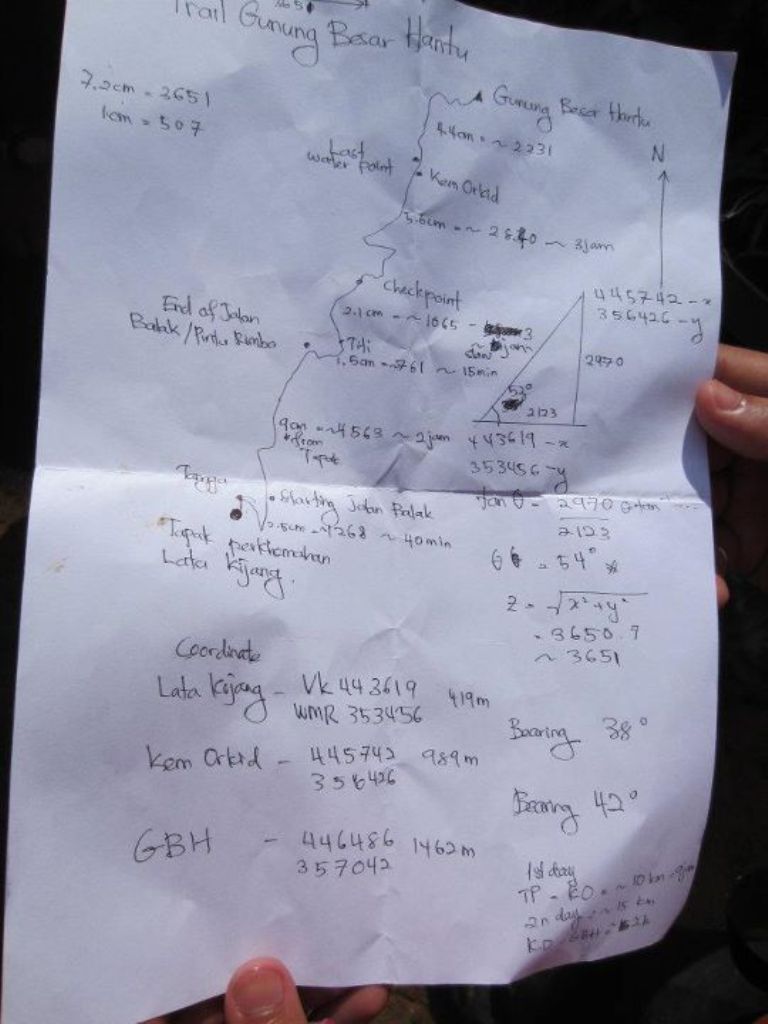 Trail Gunung Besar Hantu
7.2cm = 3651
1cm = 507
Gunung Besar Hantu
4.4cm = ~ 2231
Last
water point
Kem Orkid
N
5.6cm = ~ 2840 ~ 3jam
Checkpoint
2.1cm = ~1065 -
jam
End of Jalan
Balak / Pintu Rimba
1.5cm = ~761 ~ 15min
445742 - x
356426 - y
2970
53°
2123
443619 - x
353456 - y
9cm = ~4563 ~ 2jam
*from
Tapak
Starting Jalan Balak
2.5cm = ~1268 ~ 40min
Tapak perkhemahan
Lata Kijang.
tan θ = 2970
2123
θ = 54°
z = √x²+y²
= 3650.7
~ 3651
Coordinate
Lata Kijang - VK 443619 419m
WMR 353456
Kem Orkid - 445742 989m
356426
GBH - 446486 1462m
357042
Bearing 38°
Bearing 42°
1st day
TP - KO = ~ 10 km
2n day = ~ 15 km